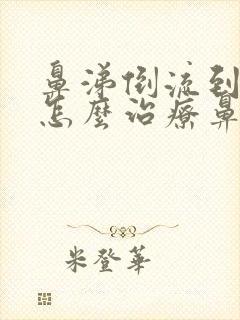 鼻涕倒流到
怎麼治療鼻
米登華